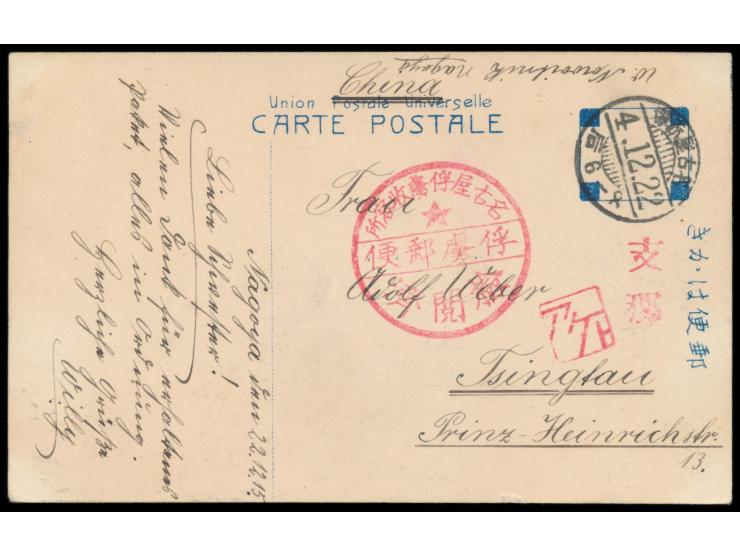 China
W. nagoya
Union Postale Universelle
CARTE POSTALE
4.12.22
后 6-
名古屋俘虜収容所
俘虜郵便
検閲済
Frau
Adolf Weber
Tsingtau
Prinz-Heinrichstr.
13.
支那
きかは便郵
Nagoya den 22.12.15.
Liebe Schwester!
Vielen Dank für erhaltenes
Paket, alles in Ordnung.
Herzliche Grüße
Willy